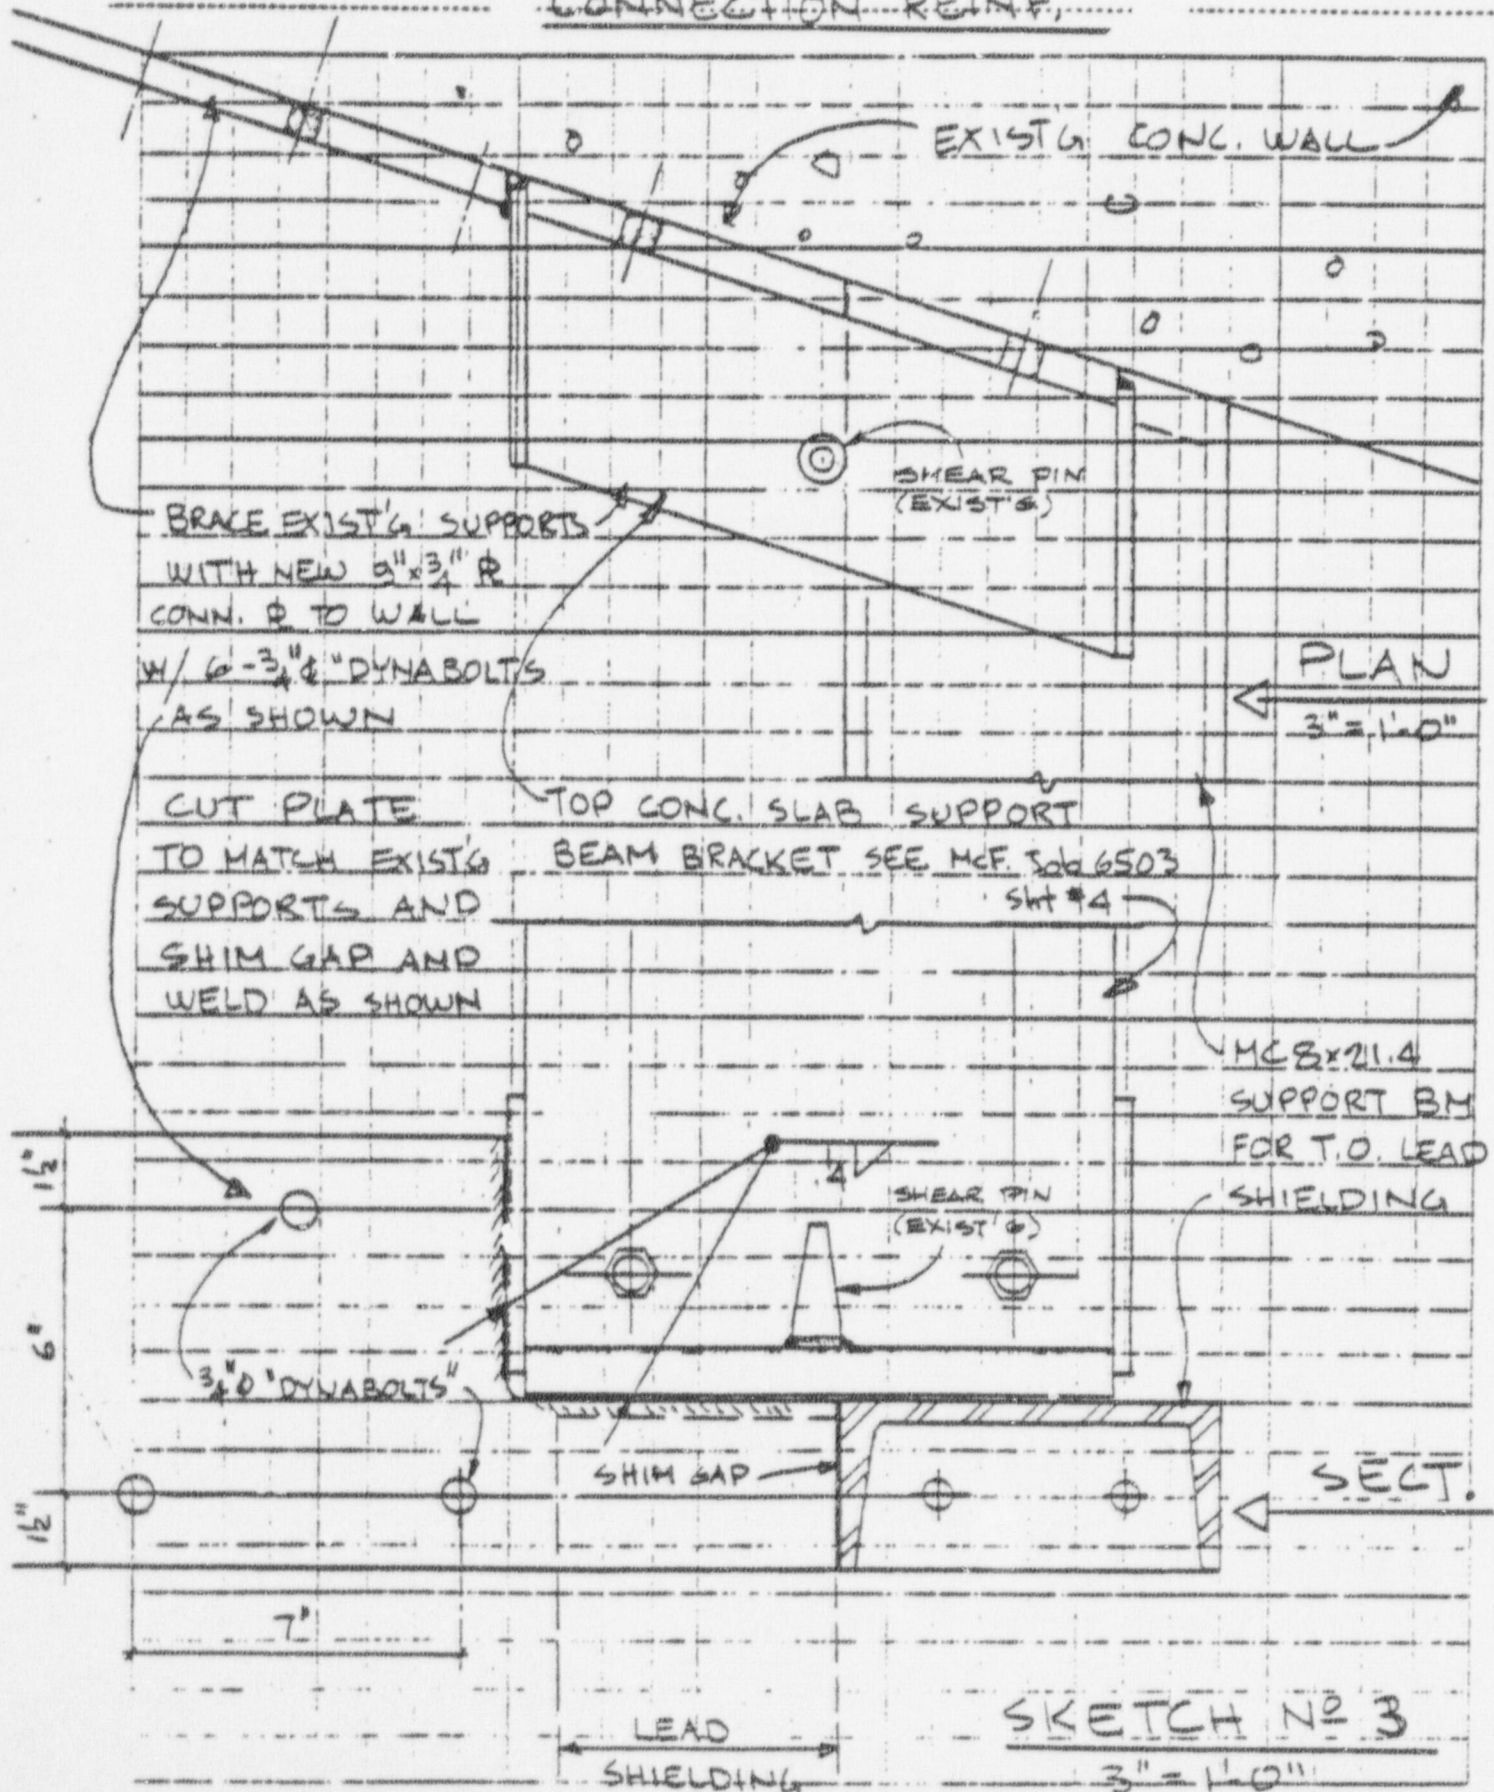 CONNECTION REINF.
EXIST'G CONC. WALL
SHEAR PIN
(EXIST'G)
BRACE EXIST'G SUPPORTS
WITH NEW 9"x3/4" PL
CONN. PL TO WALL
W/ 6-3/4"φ "DYNABOLTS
AS SHOWN
PLAN
3"=1'-0"
CUT PLATE
TO MATCH EXIST'G
SUPPORTS AND
SHIM GAP AND
WELD AS SHOWN
TOP CONC. SLAB SUPPORT
BEAM BRACKET SEE McF. Job 6503
Sht #4
MC8x21.4
SUPPORT BM
FOR T.O. LEAD
SHIELDING
1½"
6"
1½"
4
SHEAR PIN
(EXIST'G)
3/4"φ "DYNABOLTS"
SHIM GAP
SECT.
7"
LEAD
SHIELDING
SKETCH Nº 3
3"=1'-0"